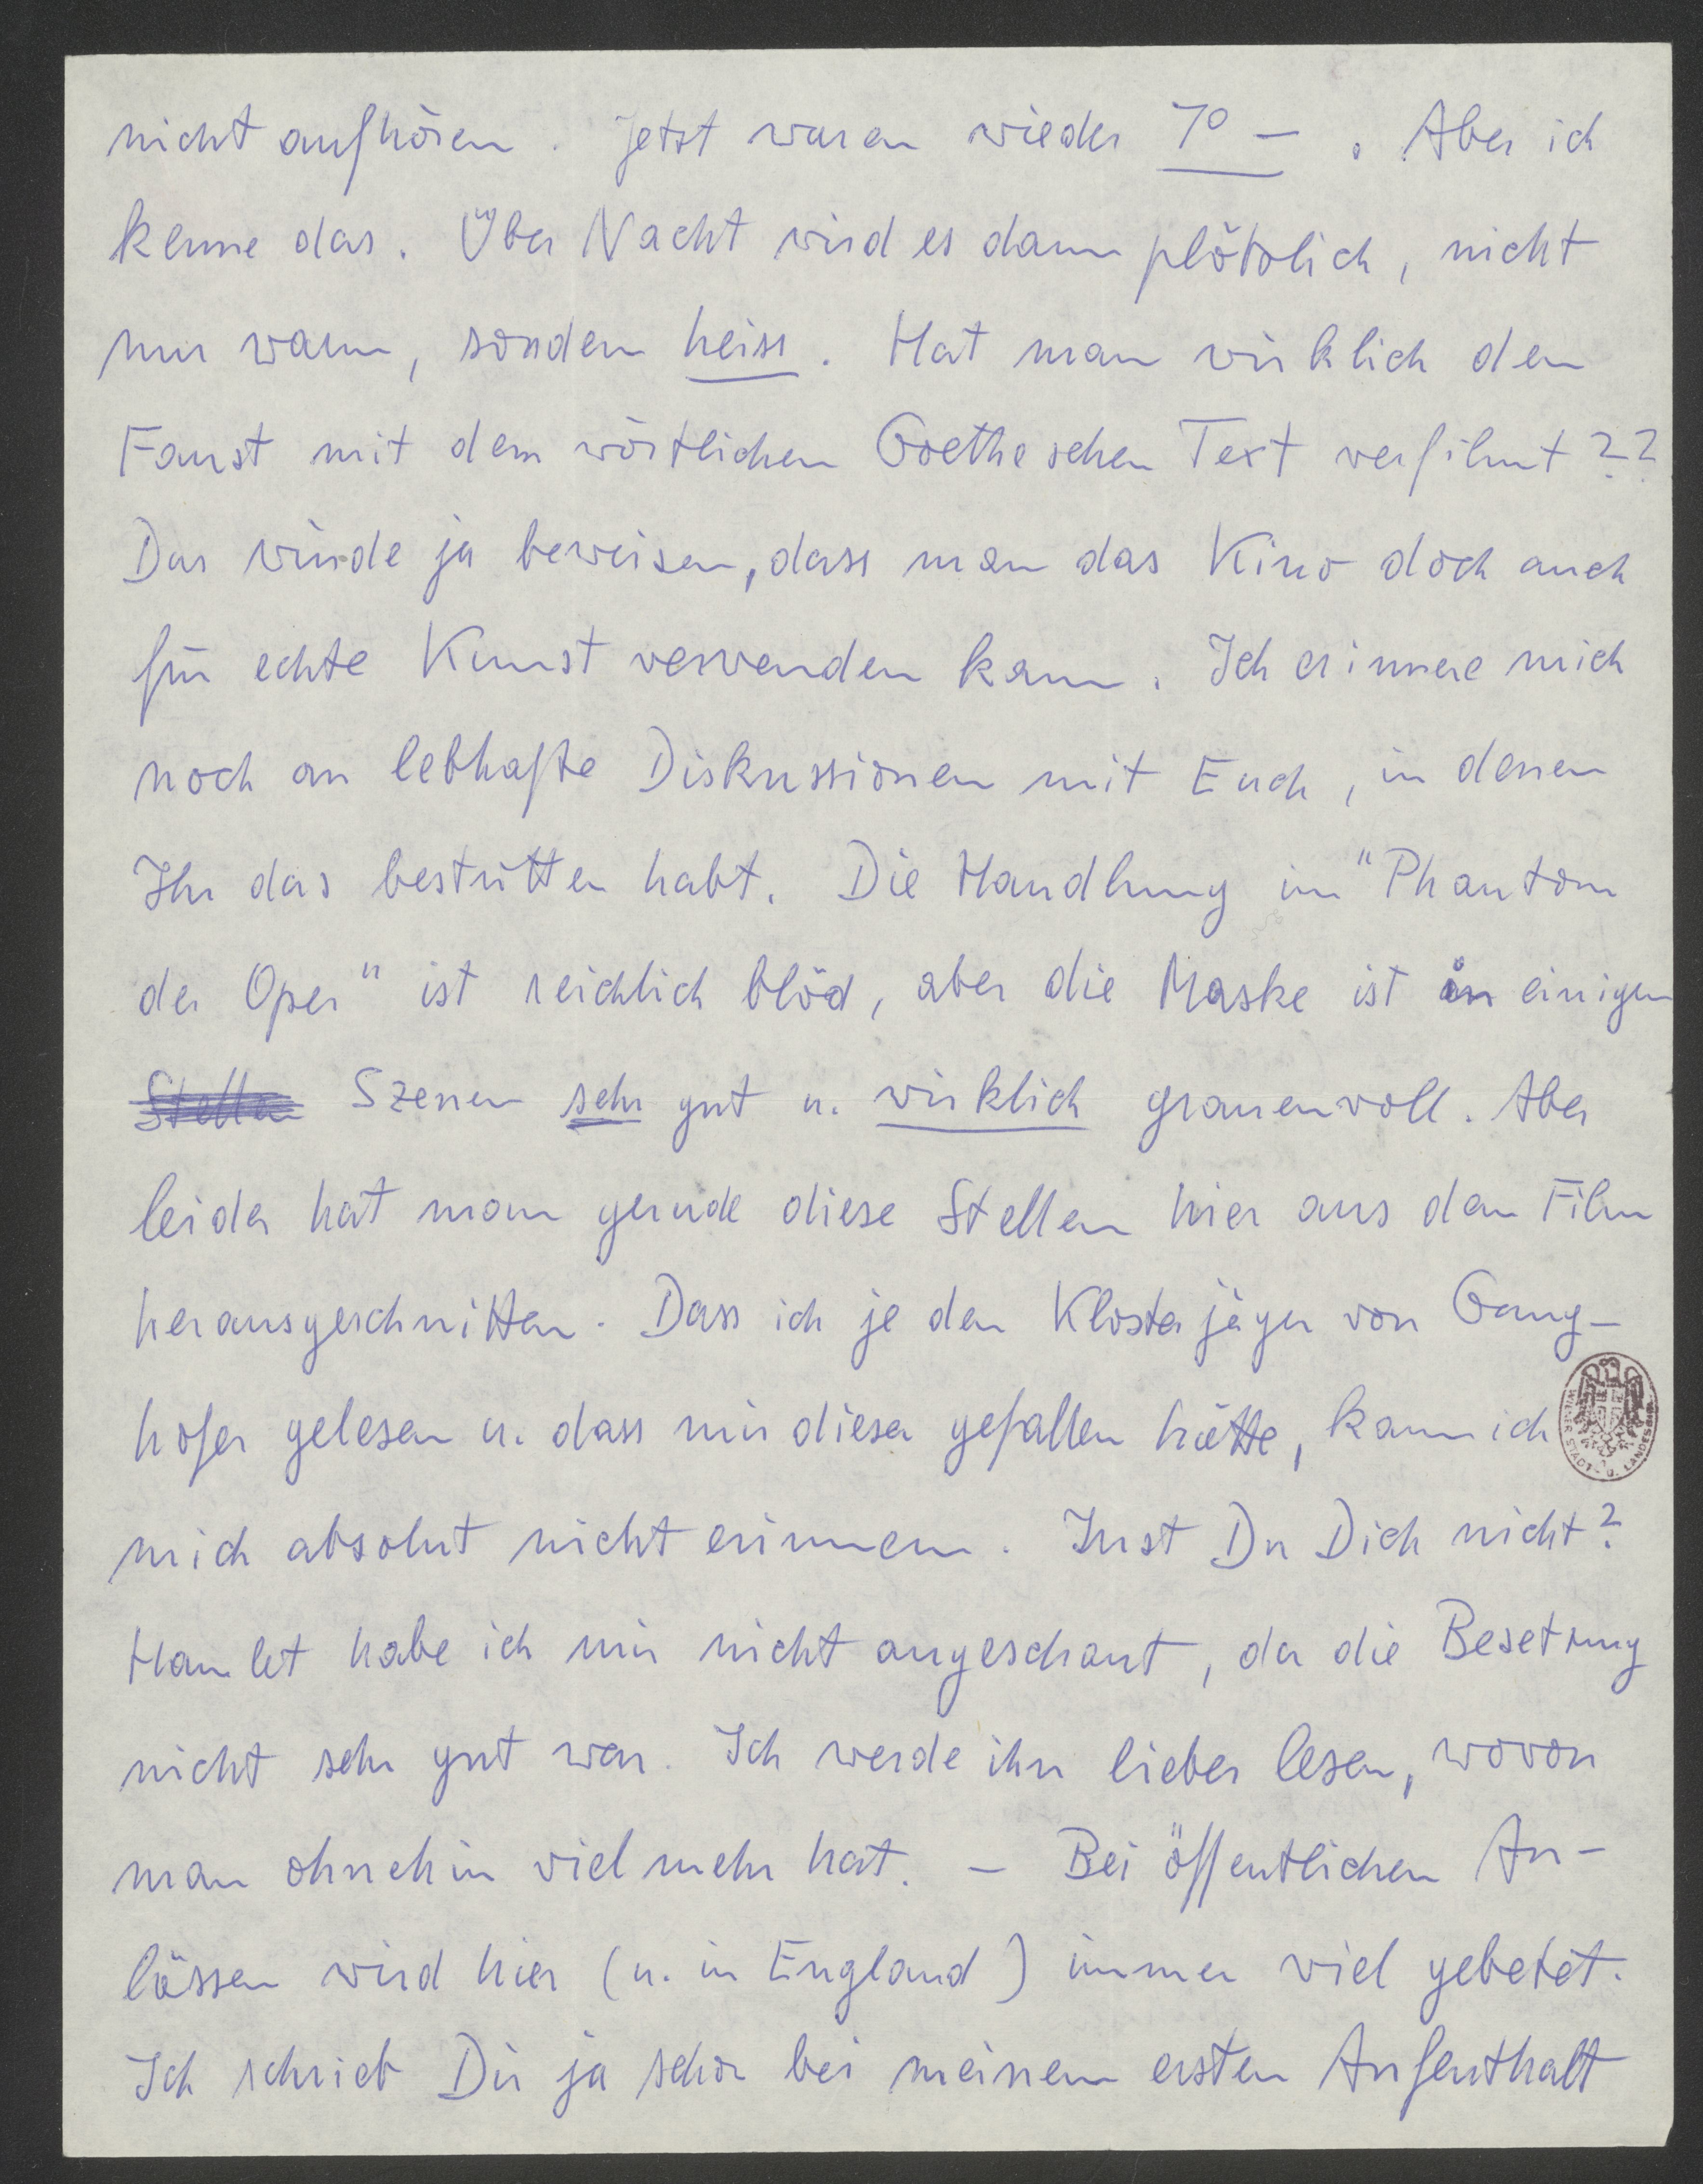 nicht aufhören. Jetzt waren wieder 7° –. Aber ich
kenne das. Über Nacht wird es dann plötzlich, nicht
nur warm, sondern heiss. Hat man wirklich den
Faust mit dem wörtlichen Goetheschen Text verfilmt??
Das würde ja beweisen, dass man das Kino doch auch
für echte Kunst verwenden kann. Ich erinnere mich
noch an lebhafte Diskussionen mit Euch, in denen
Ihr das bestritten habt. Die Handlung im "Phantom
der Oper" ist reichlich blöd, aber die Maske ist in einigen
Stellen Szenen sehr gut u. wirklich grauenvoll. Aber
leider hat man gerade diese Stellen hier aus dem Film
herausgeschnitten. Dass ich je den Klosterjäger von Gang-
hofer gelesen u. dass mir dieser gefallen hätte, kann ich
mich absolut nicht erinnern. Irrst Du Dich nicht?
Hamlet habe ich mir nicht angeschaut, da die Besetzung
nicht sehr gut war. Ich werde ihn lieber lesen, wovon
man ohnehin viel mehr hat. – Bei öffentlichen An-
lässen wird hier (u. in England) immer viel gebetet.
Ich schrieb Dir ja schon bei meinem ersten Aufenthalt
WIENER STADT- U. LANDESBIBL.